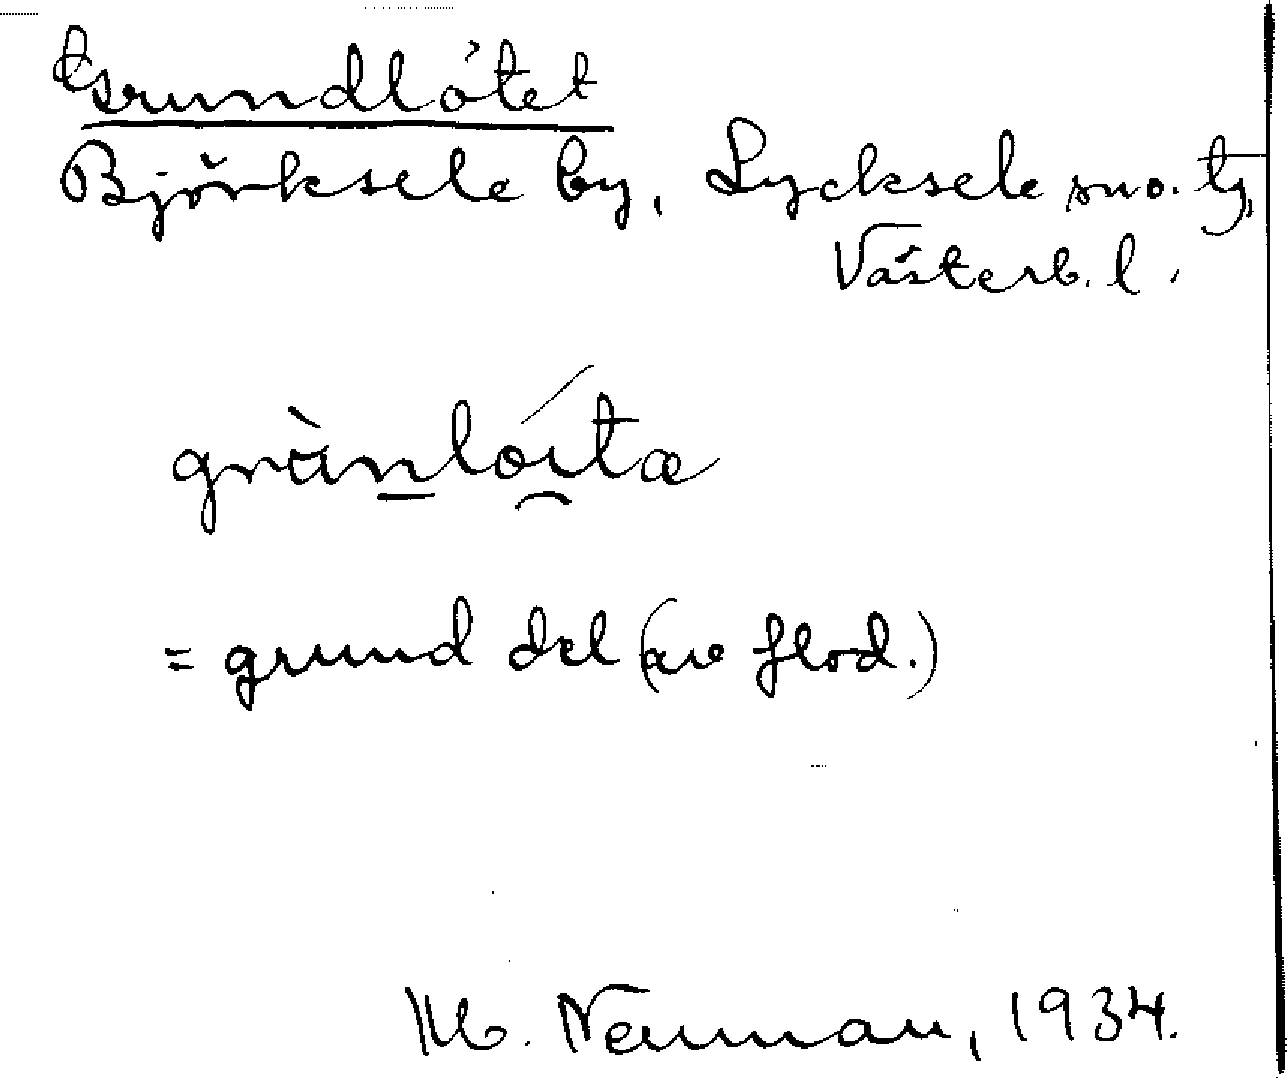 Grundlótet
Björksele by, Lycksele sno. tg,
Västerb. l.
grùnlóıtæ
= grund del (av flod.)
M. Neuman, 1934.